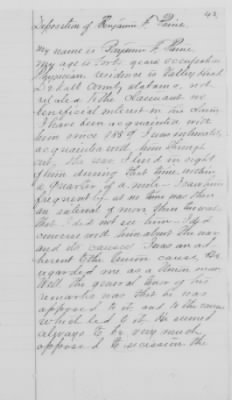 43.
Deposition of Benjamin F. Paine.
My name is Benjamin F. Paine
My age is forty years occupation
Physician residence is Valley Head
DeKalb County Alabama, not
related to the Claimant no
beneficial interest in his claim
I have been acquainted with
him since 1859 I was intimately
acquainted with him through
out the war I lived in sight
of him during that time within
a quarter of a mile I saw him
frequently at no time was there
an interval of more than
that I did not see him I
converse with him about the war
and its causes I was an ad
herent to the Union cause, He
regarded me as a Union man
Well the general tenor of his
remarks was that he was
opposed to it and to the cause
which led to it He seemed
always to be very much
opposed to secession the